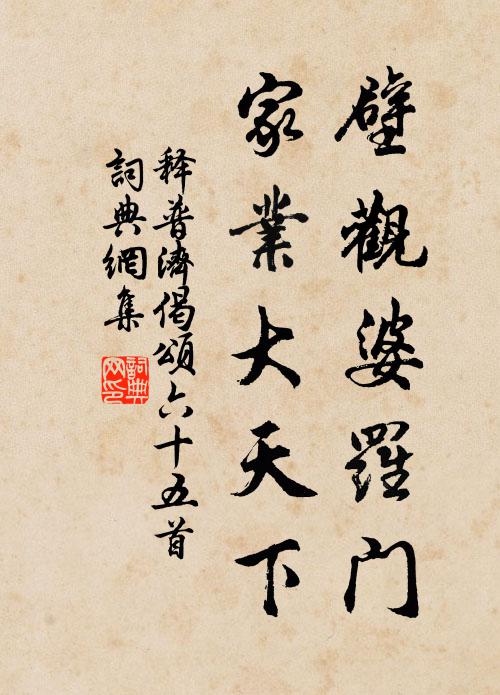 壁觀婆羅门
家業大天下
释普濟偈頌六十五首
詞典網集
詞典网印